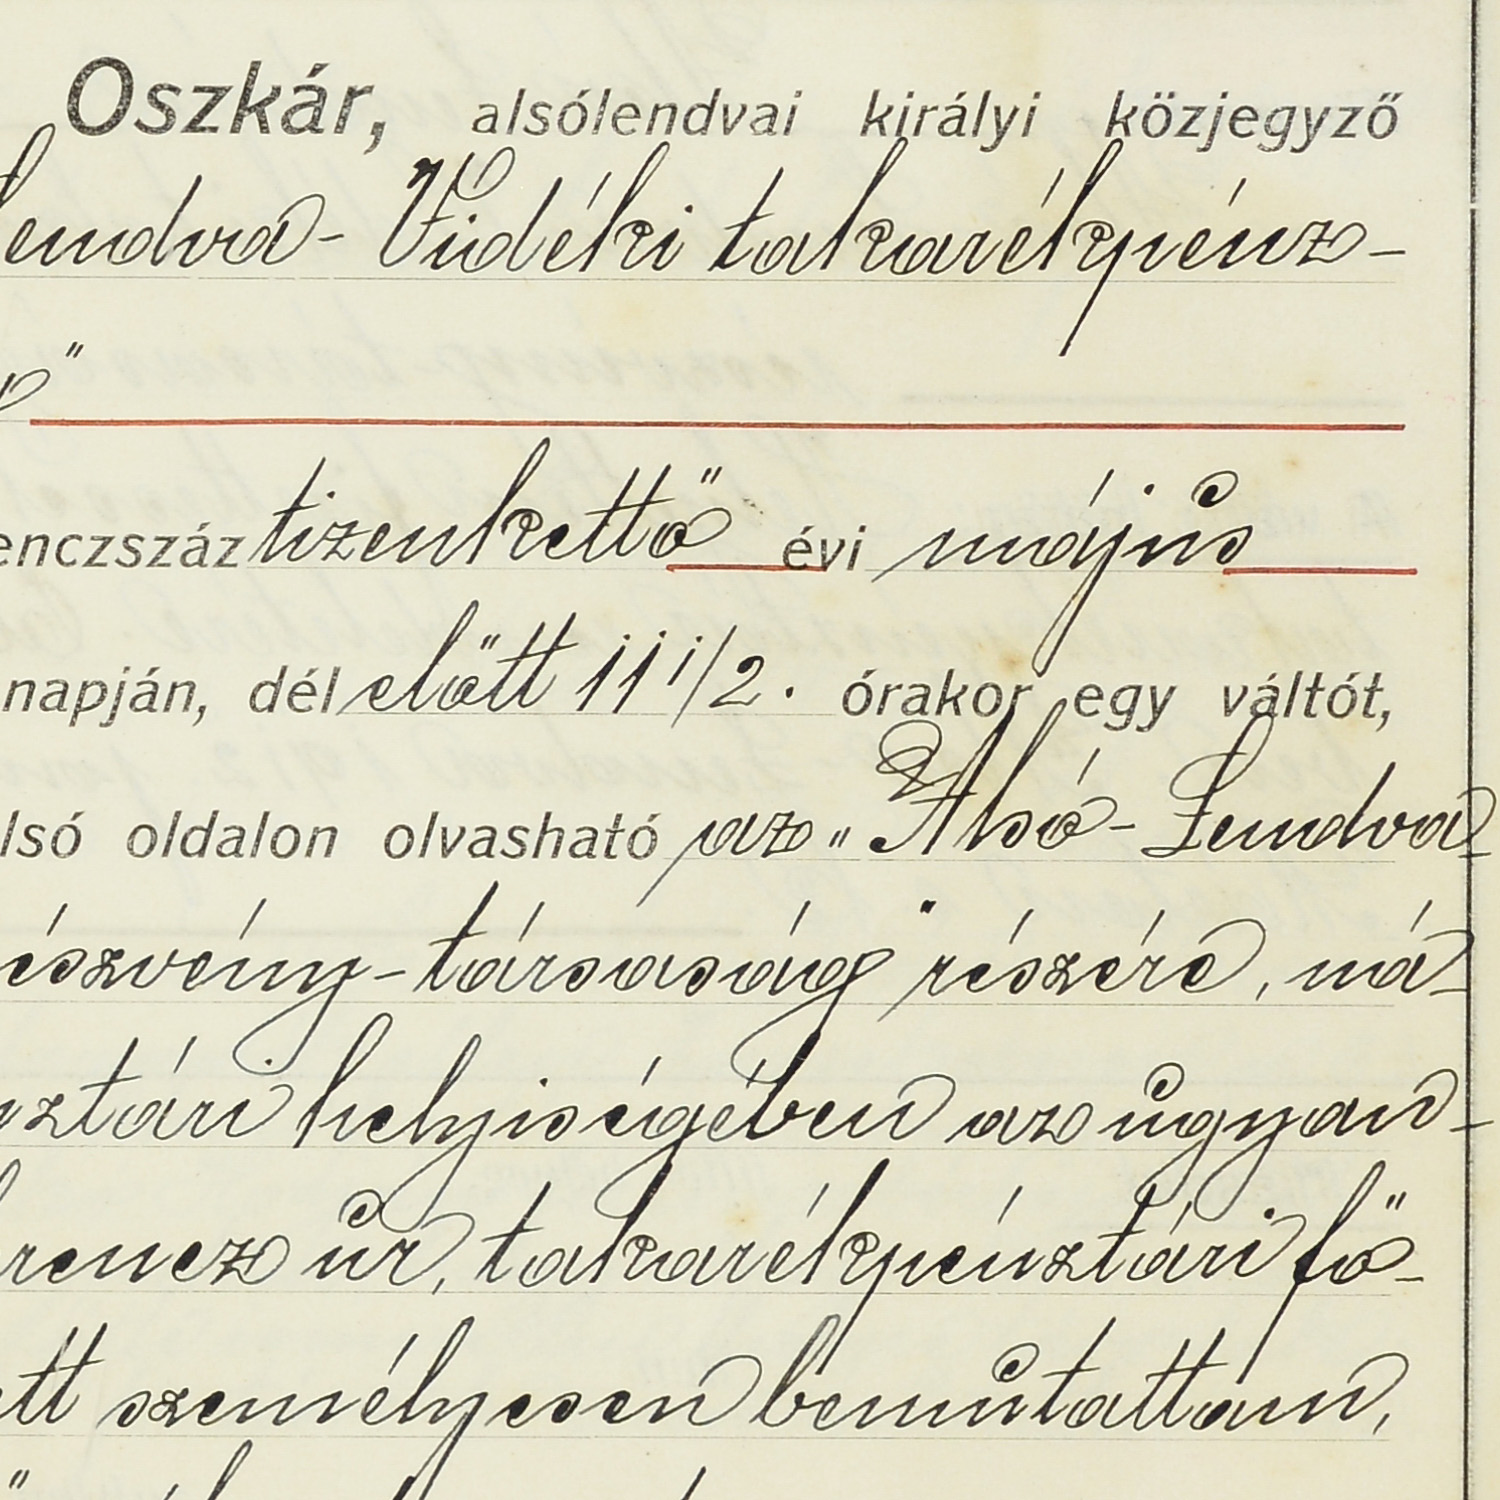 Oszkár, alsólendvai királyi közjegyző
Lendva-Vidéki takarékpénz-
"
enczszáz tizenkettő évi május
napján, délelőtt 11 1/2. órakor egy váltót,
lsó oldalon olvasható az „Alsó-Lendva-
észvény-társaság" részére, ná-
sztári helyiségében az ugyan-
rencz úr, takarékpénztári fő-
ett személyesen bemutattam,